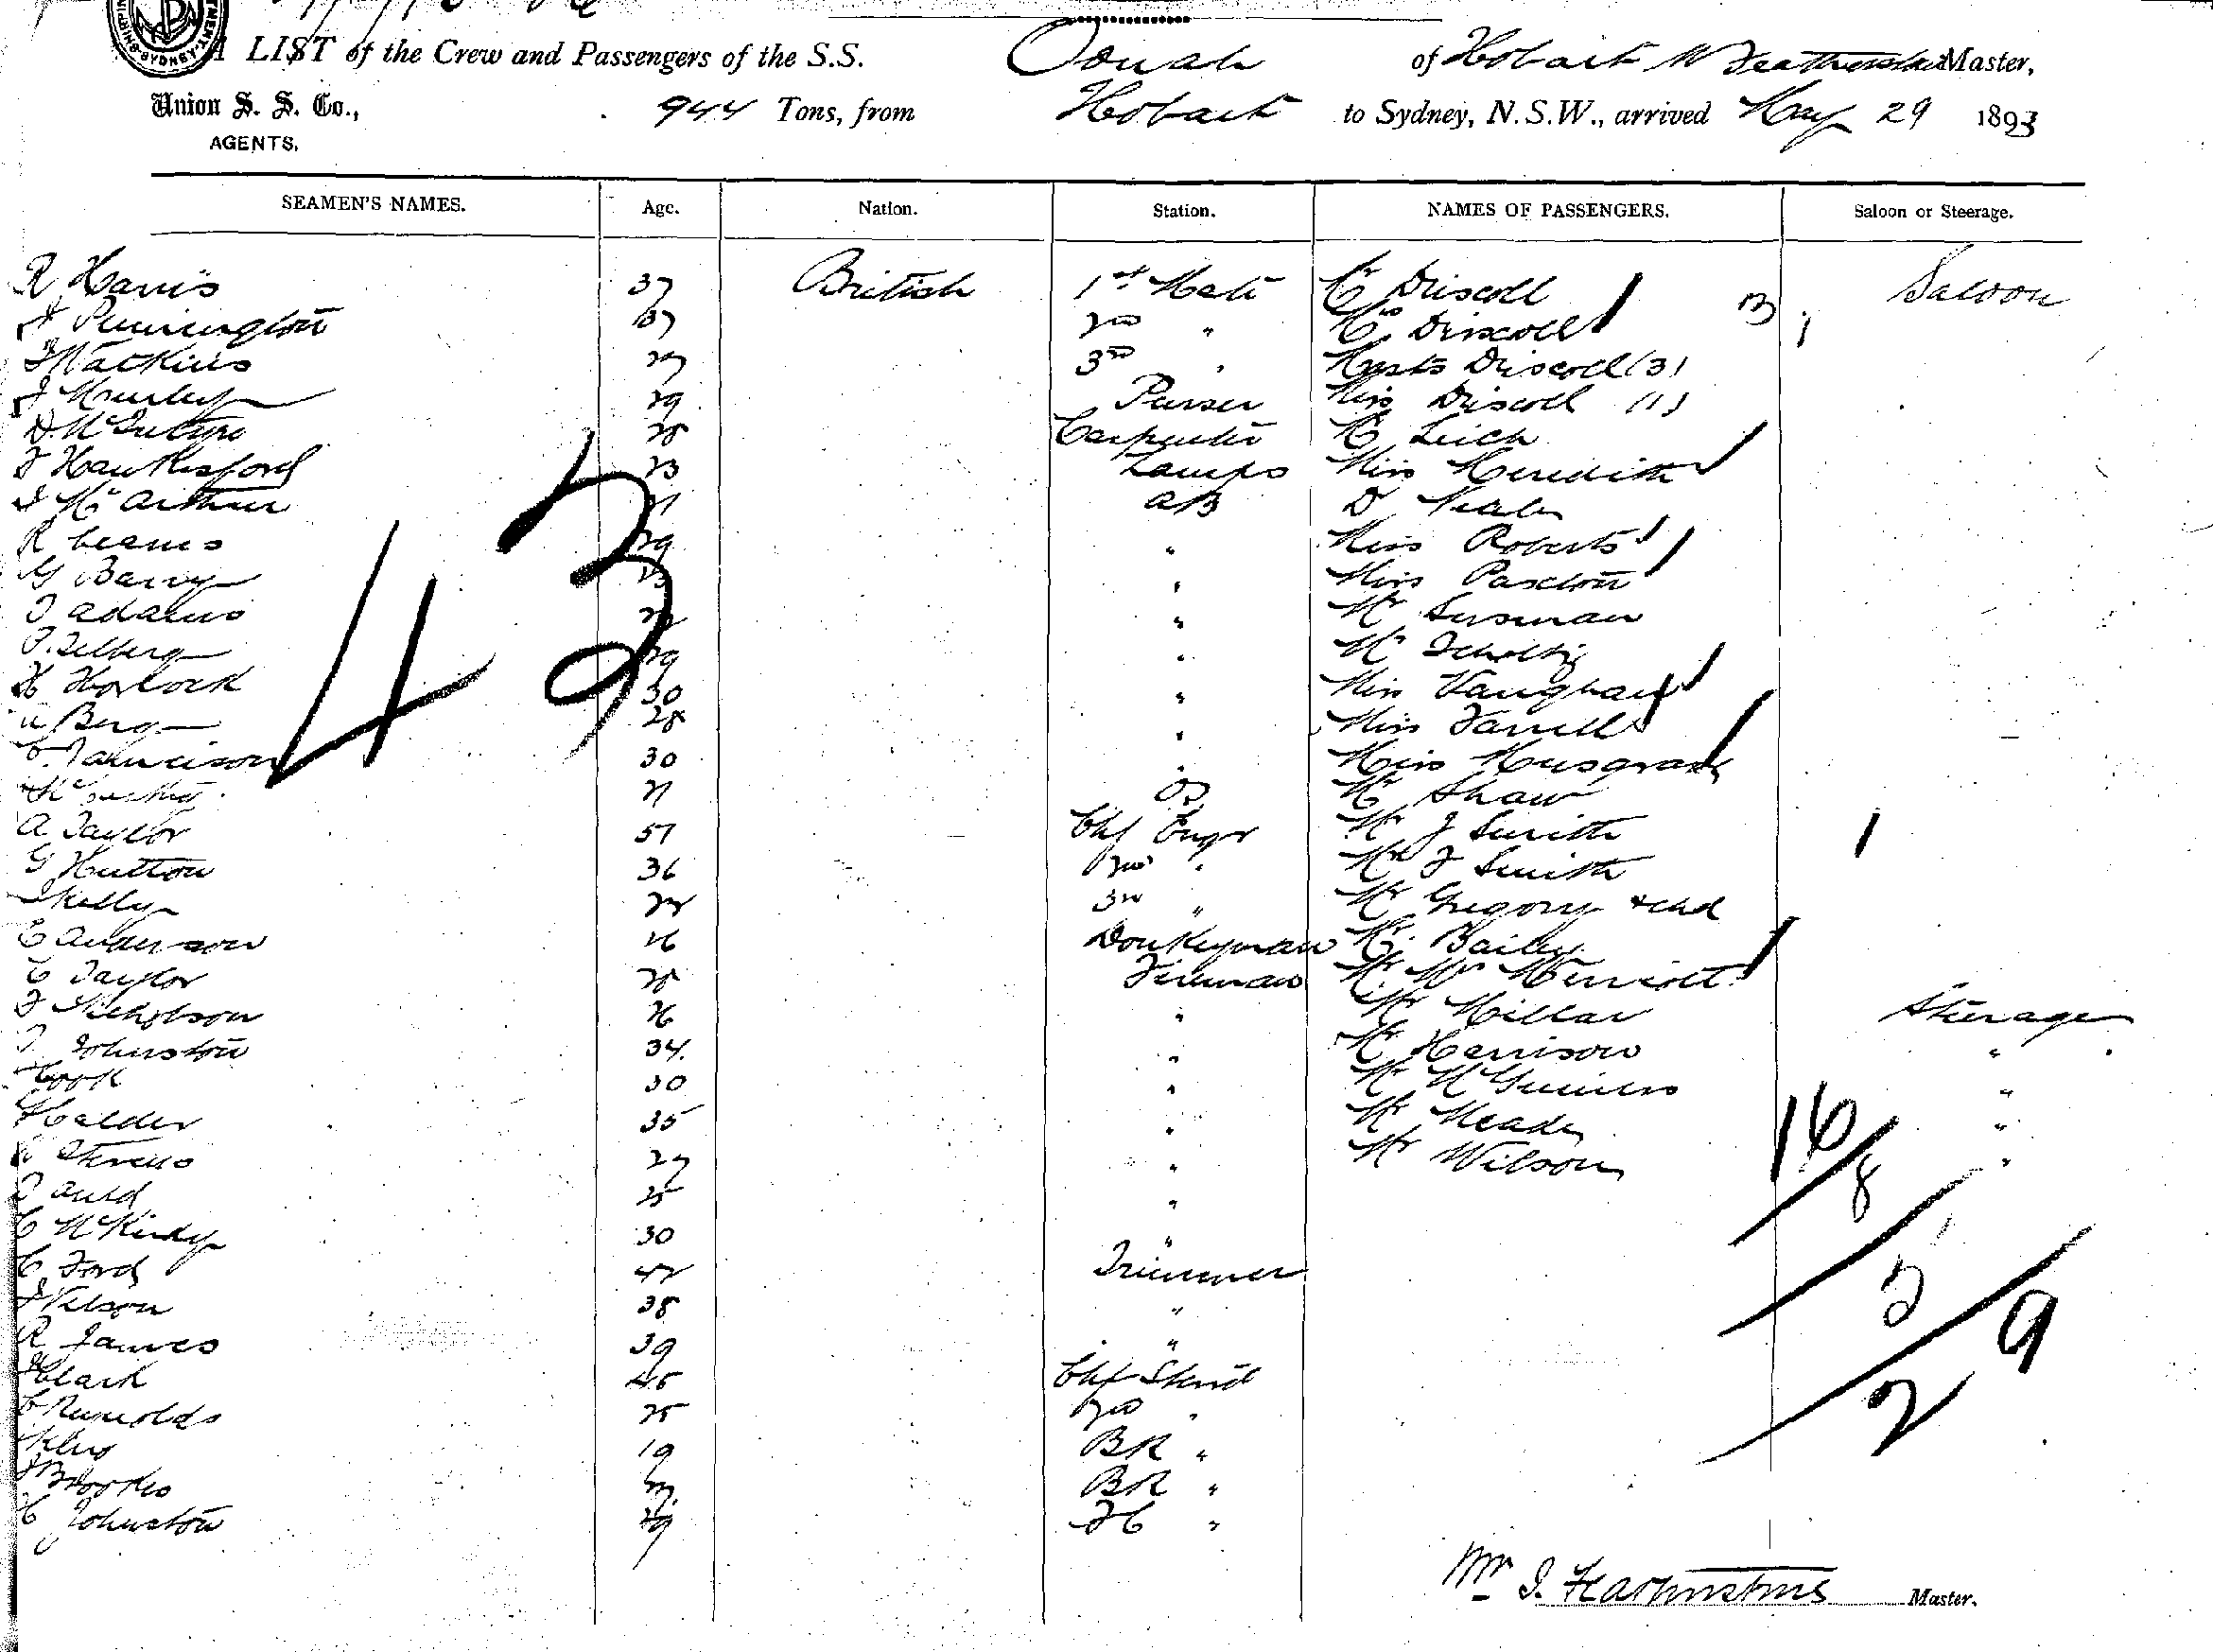 A LIST of the Crew and Passengers of the S.S. Oonah of Hobart W Featherstone Master,
Union S. S. Co., 944 Tons, from Hobart to Sydney, N.S.W., arrived May 29 1893
AGENTS.
SEAMEN'S NAMES. Age. Nation. Station. NAMES OF PASSENGERS. Saloon or Steerage.
R Harris 37 British 1st Mate Mr Driscoll Saloon
Pennington 37 2nd " Mrs Driscoll 3
Watkins 27 3rd " Masts Driscoll (3)
J Manley 29 Purser Miss Driscoll (1)
D. McIntyre 28 Carpenter Mr Leich
F Hawkesford 23 Lamps Miss Meredith
J McArthur AB D
R 29 " Miss Roberts
G Barry " Miss Paxton
J Adams " Mr Susman
29 " Mr Scholtz
H Horlock 30 " Miss Vaughan
Berg 28 " Miss Farrell
30 " Miss Musgrave
21 OS Mr Shaw
A Taylor 57 Chf Engr Mr J Smith
G Hutton 36 2nd " Mr F Smith
Skelly 28 3rd " Mr Gregory & chd
C Anderson 26 Donkeyman Mr. Bailey
C Taylor 28 Fireman Mr
F Nicholson 26 " Mr Millar Steerage
Johnston 34 " Mr Harrison "
Cook 30 " Mr McGuiness "
Halder 35 " Mr Meade "
27 " Mr Wilson "
Auld 25 "
C McKindy 30 "
C Ford 42 Trimmer
Nelson 38 "
R James 39 "
Clark 45 Chf Stewd
C Runolds 25 2nd "
19 BR "
J Brookes BR "
C Johnston FC "
43
16
8
5
29
Mr
Master.